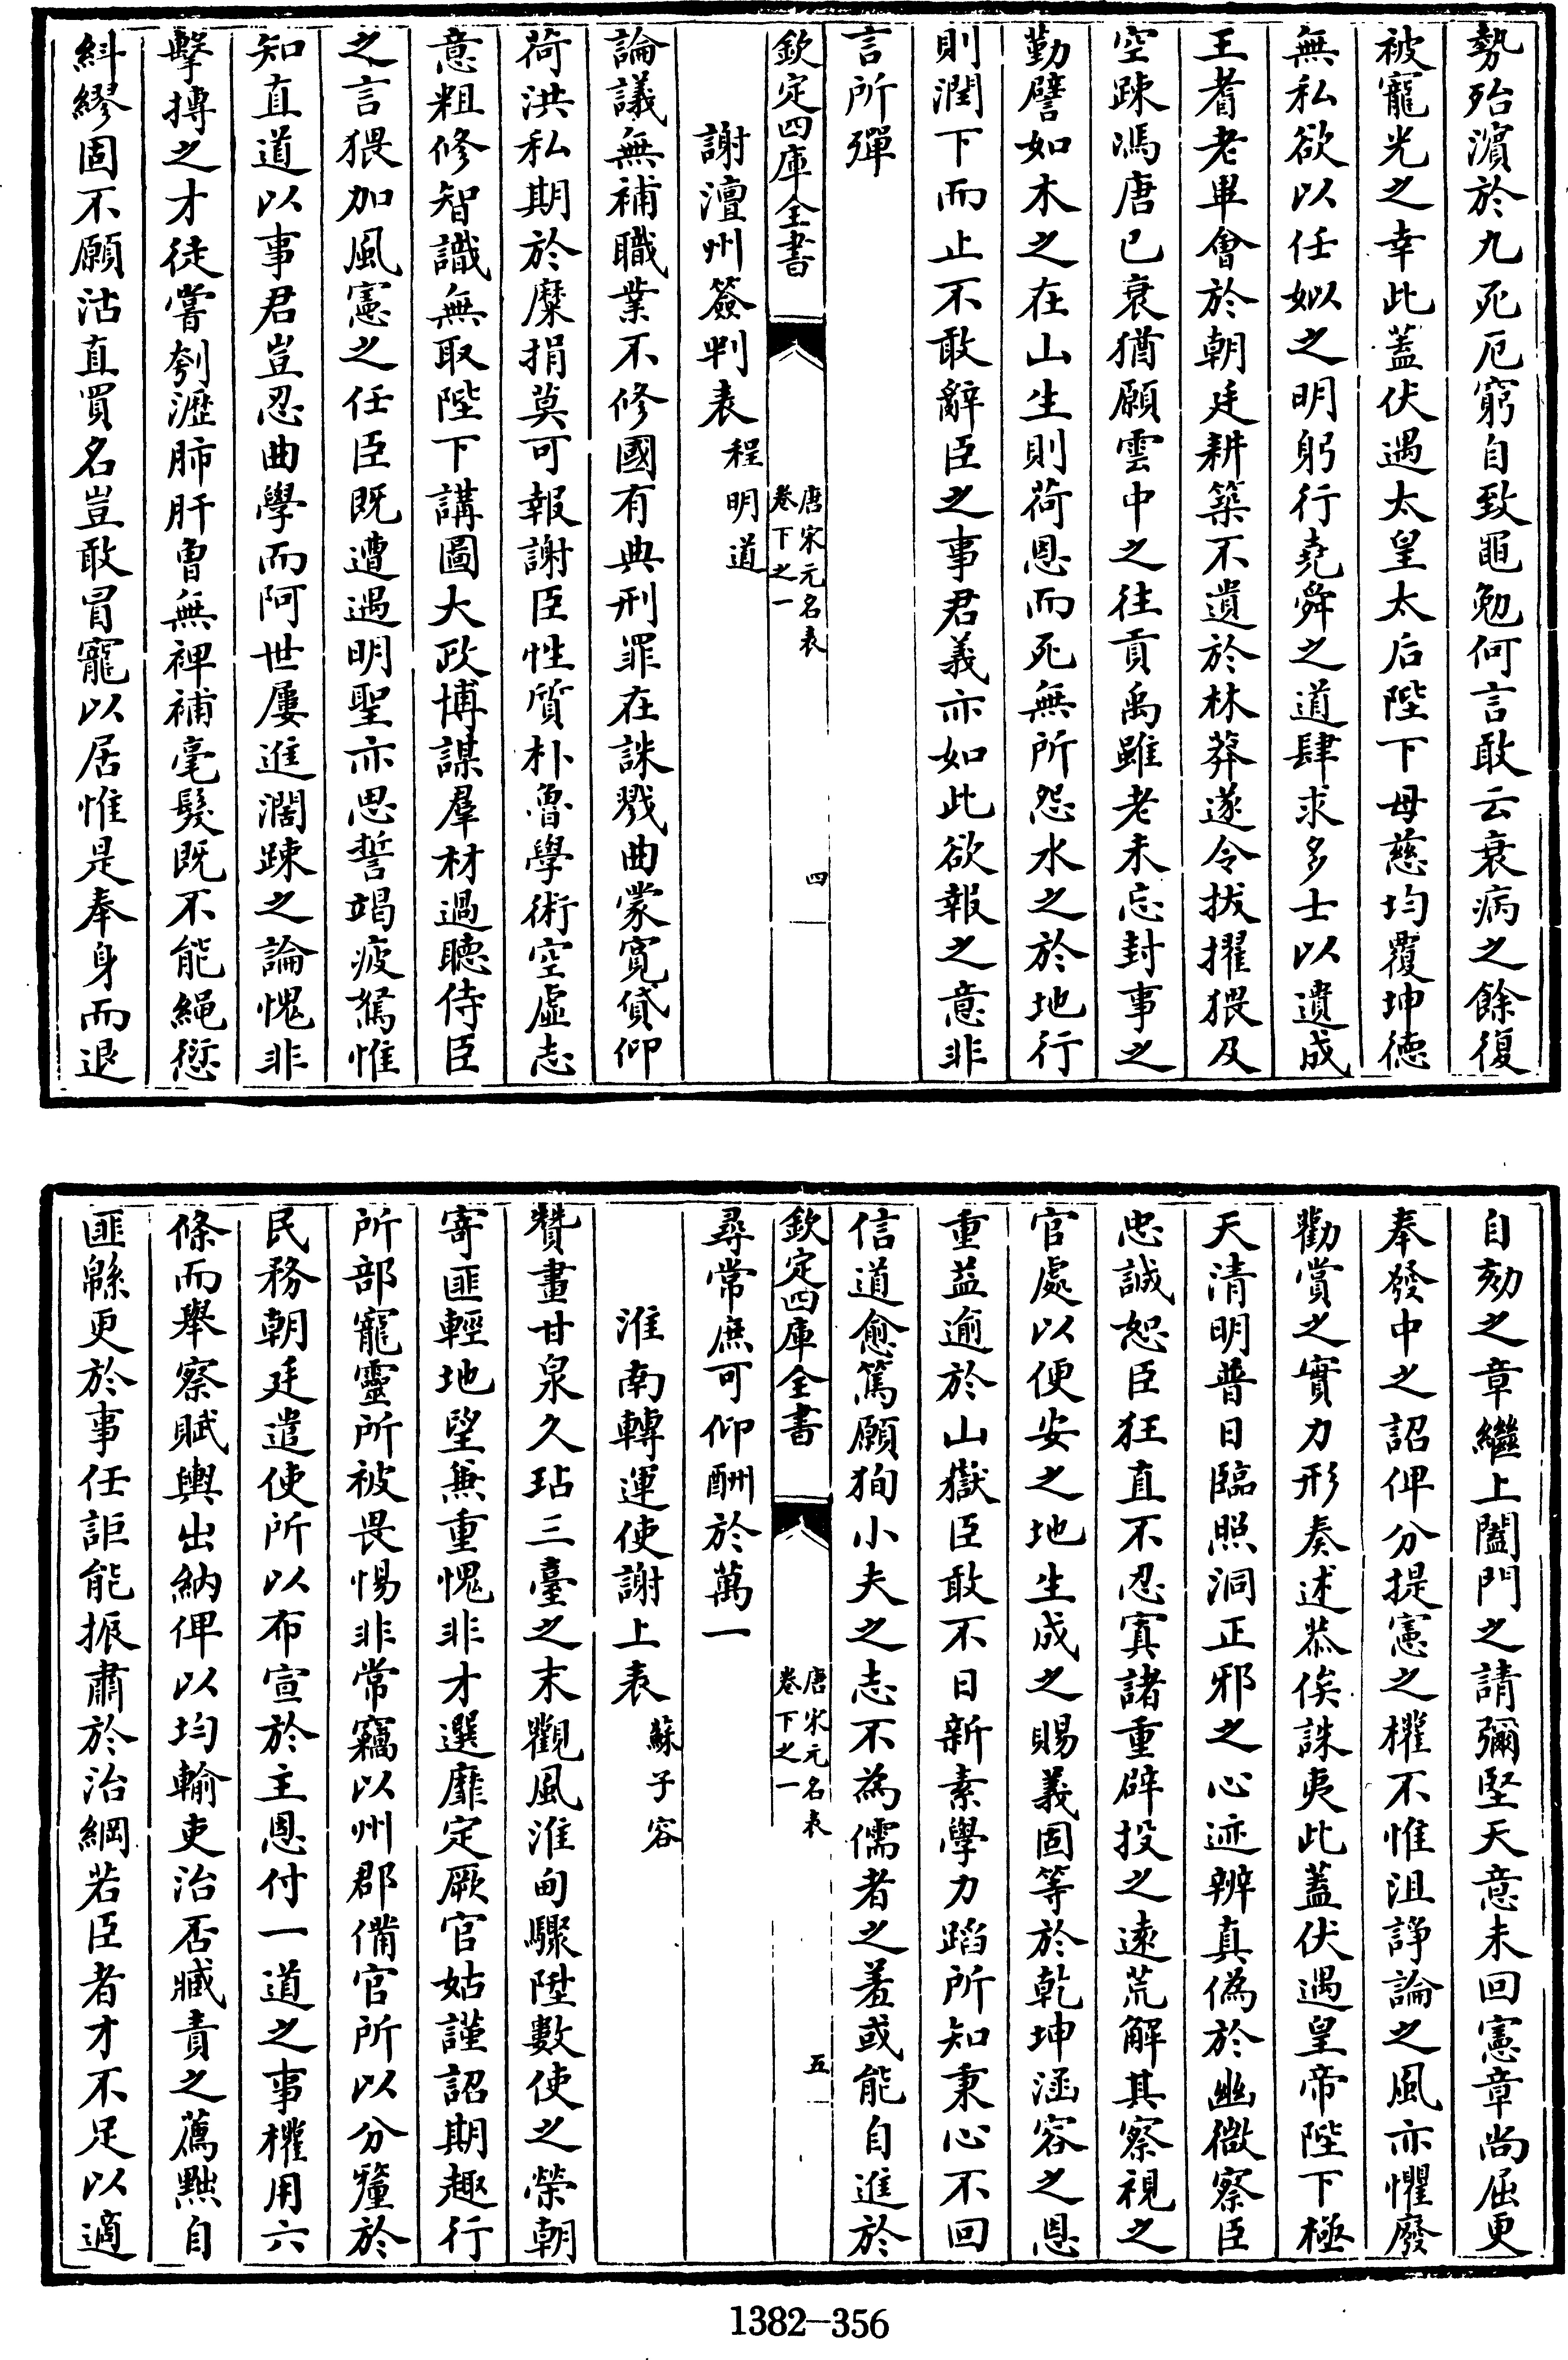 勢殆濵於九死厄窮自致黽勉何言敢云衰病之餘復
被寵光之幸此蓋伏遇太皇太后陛下母慈均覆坤德
無私欲以任姒之明躬行堯舜之道肆求多士以遺成
王耆老畢會於朝廷耕築不遺於林莽遂令拔擢猥及
空踈馮唐已衰猶願雲中之往貢禹雖老未忘封事之
勤譬如木之在山生則荷恩而死無所怨水之於地行
則潤下而止不敢辭臣之事君義亦如此欲報之意非
言所殫
欽定四庫全書
唐宋元名表
卷下之一
四
謝澶州簽判表 程明道
論議無補職業不修國有典刑罪在誅戮曲蒙寛貸仰
荷洪私期於糜捐莫可報謝臣性質朴魯學術空虛志
意粗修智識無取陛下講圖大政博謀羣材過聽侍臣
之言猥加風憲之任臣既遭遇明聖亦思誓竭疲駑惟
知直道以事君豈忍曲學而阿世屢進濶踈之論愧非
擊搏之才徒嘗刳瀝肺肝曽無裨補毫髮既不能繩愆
糾繆固不願沽直買名豈敢冒寵以居惟是奉身而退
自劾之章繼上闔門之請彌堅天意未回憲章尚屈更
奉發中之詔俾分提憲之權不惟沮諍論之風亦懼廢
勸賞之實力形奏述恭俟誅夷此蓋伏遇皇帝陛下極
天清明普日臨照洞正邪之心迹辨真偽於幽微察臣
忠誠恕臣狂直不忍寘諸重辟投之遠荒解其察視之
官處以便安之地生成之賜義固等於乾坤涵容之恩
重益逾於山嶽臣敢不日新素學力蹈所知秉心不回
信道愈篤願狥小夫之志不為儒者之羞或能自進於
欽定四庫全書
唐宋元名表
卷下之一
五
尋常庶可仰酬於萬一
淮南轉運使謝上表 蘇子容
贊畫甘泉久玷三臺之末觀風淮甸驟陞數使之榮朝
寄匪輕地望兼重愧非才選靡定厥官姑謹詔期趣行
所部寵靈所被畏惕非常竊以州郡備官所以分釐於
民務朝廷遣使所以布宣於主恩付一道之事權用六
條而舉察賦輿出納俾以均輸吏治否臧責之薦黜自
匪緜更於事任詎能振肅於治綱若臣者才不足以適
1382-356